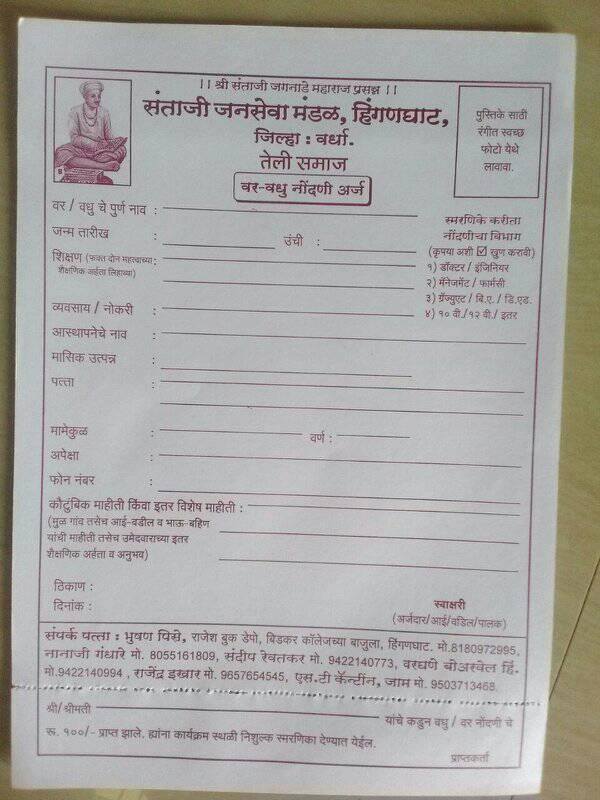 ।। श्री संताजी जगनाडे महाराज प्रसन्न ।।
संताजी जनसेवा मंडळ, हिंगणघाट,
जिल्हा : वर्धा.
तेली समाज
वर-वधु नोंदणी अर्ज
पुस्तिके साठी
रंगीत स्वच्छ
फोटो येथे
लावावा.
वर / वधु चे पुर्ण नाव :
जन्म तारीख : उंची :
शिक्षण (फक्त दोन महत्वाच्या :
शैक्षणिक अर्हता लिहाव्या)
स्मरणिके करीता
नोंदणीचा विभाग
(कृपया अशी ☑ खुण करावी)
१) डॉक्टर / इंजिनियर
२) मॅनेजमेंट / फार्मसी
३) ग्रॅज्युएट / बि.ए. / डि.एड.
४) १० वी./१२ वी./ इतर
व्यवसाय / नोकरी :
आस्थापनेचे नाव :
मासिक उत्पन्न :
पत्ता :
मामेकुळ : वर्ण :
अपेक्षा :
फोन नंबर :
कौटुंबिक माहीती किंवा इतर विशेष माहीती :
(मुळ गांव तसेच आई-वडील व भाऊ-बहिण
यांची माहीती तसेच उमेदवाराच्या इतर
शैक्षणिक अर्हता व अनुभव)
ठिकाण :
दिनांक :
स्वाक्षरी
(अर्जदार/आई/वडिल/पालक)
संपर्क पत्ता : भुषण पिसे, राजेश बुक डेपो, बिडकर कॉलेजच्या बाजुला, हिंगणघाट. मो.8180972995,
नानाजी गंधारे मो. 8055161809, संदीप रेवतकर मो. 9422140773, वरघणे बोअरवेल हिं.
मो.9422140994 , राजेंद्र डखार मो. 9657654545, एस.टी कॅन्टीन, जाम मो. 9503713468.
श्री/श्रीमती यांचे कडुन वधु / वर नोंदणी चे
रू. १००/- प्राप्त झाले. ह्यांना कार्यक्रम स्थळी निशुल्क स्मरणिका देण्यात येईल.
प्राप्तकर्ता